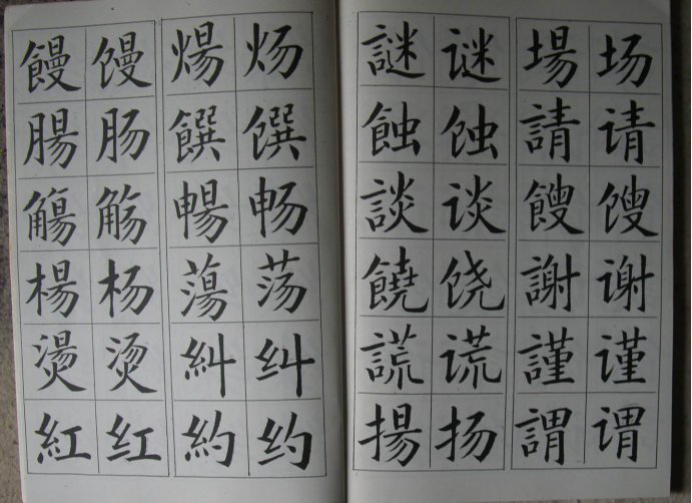 饅馒 煬炀 謎谜 場场
腸肠 饌馔 蝕蚀 請请
觴觞 暢畅 談谈 餿馊
楊杨 蕩荡 饒饶 謝谢
燙烫 糾纠 謊谎 謹谨
紅红 約约 揚扬 謂谓